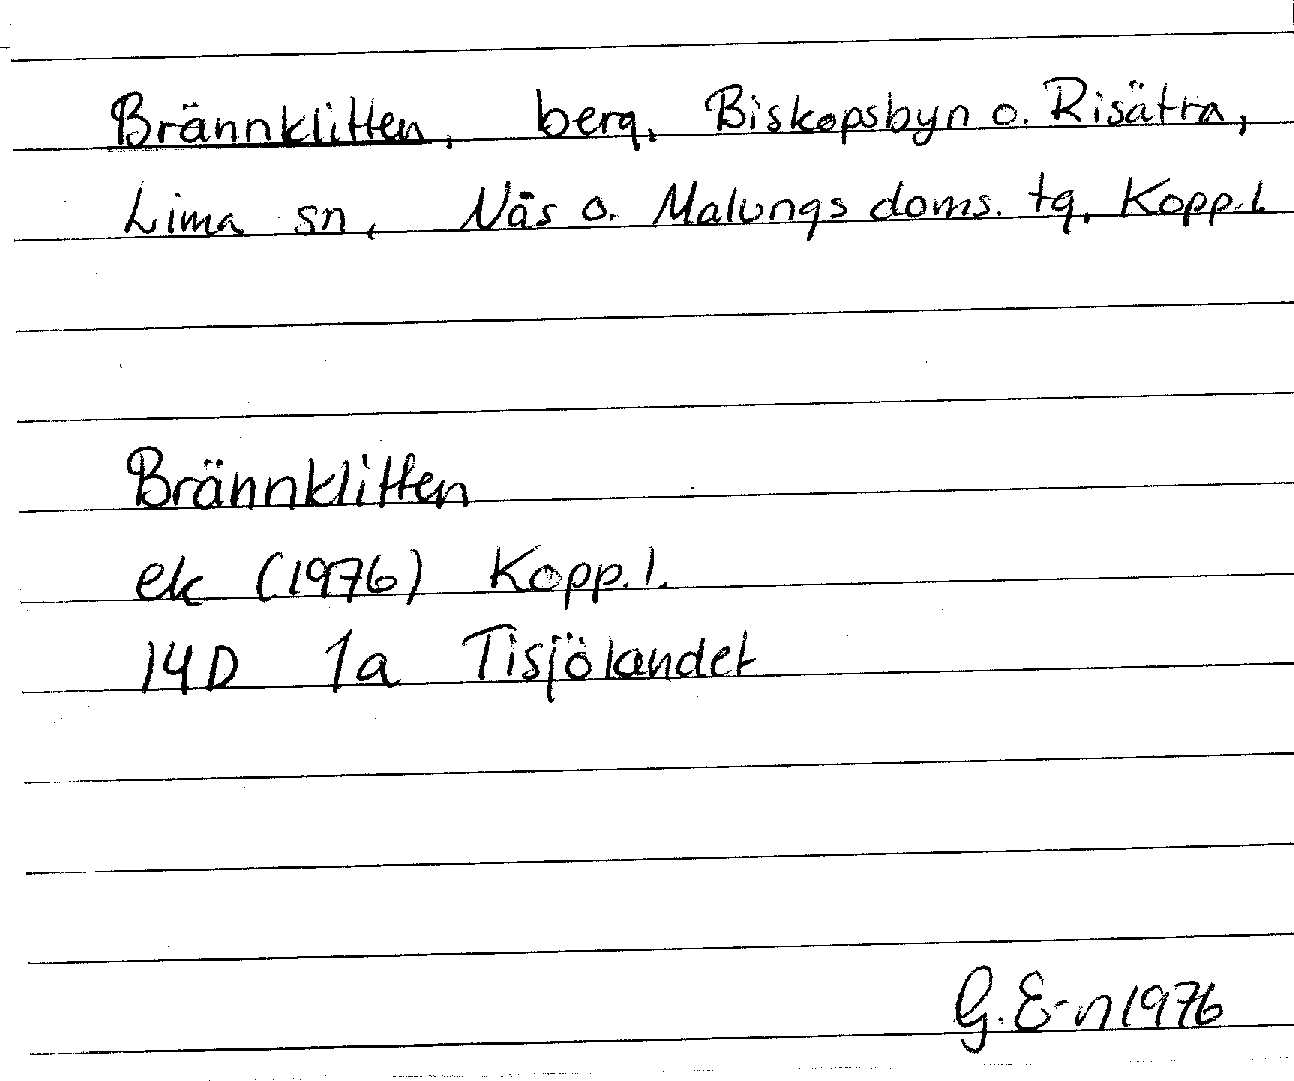 Brännklitten, berg, Biskopsbyn o. Risätra,
Lima sn, Nås o. Malungs doms. tg, Kopp.l
Brännklitten
ek (1976) Kopp.l.
14D 1a Tisjölandet
G. E-n 1976